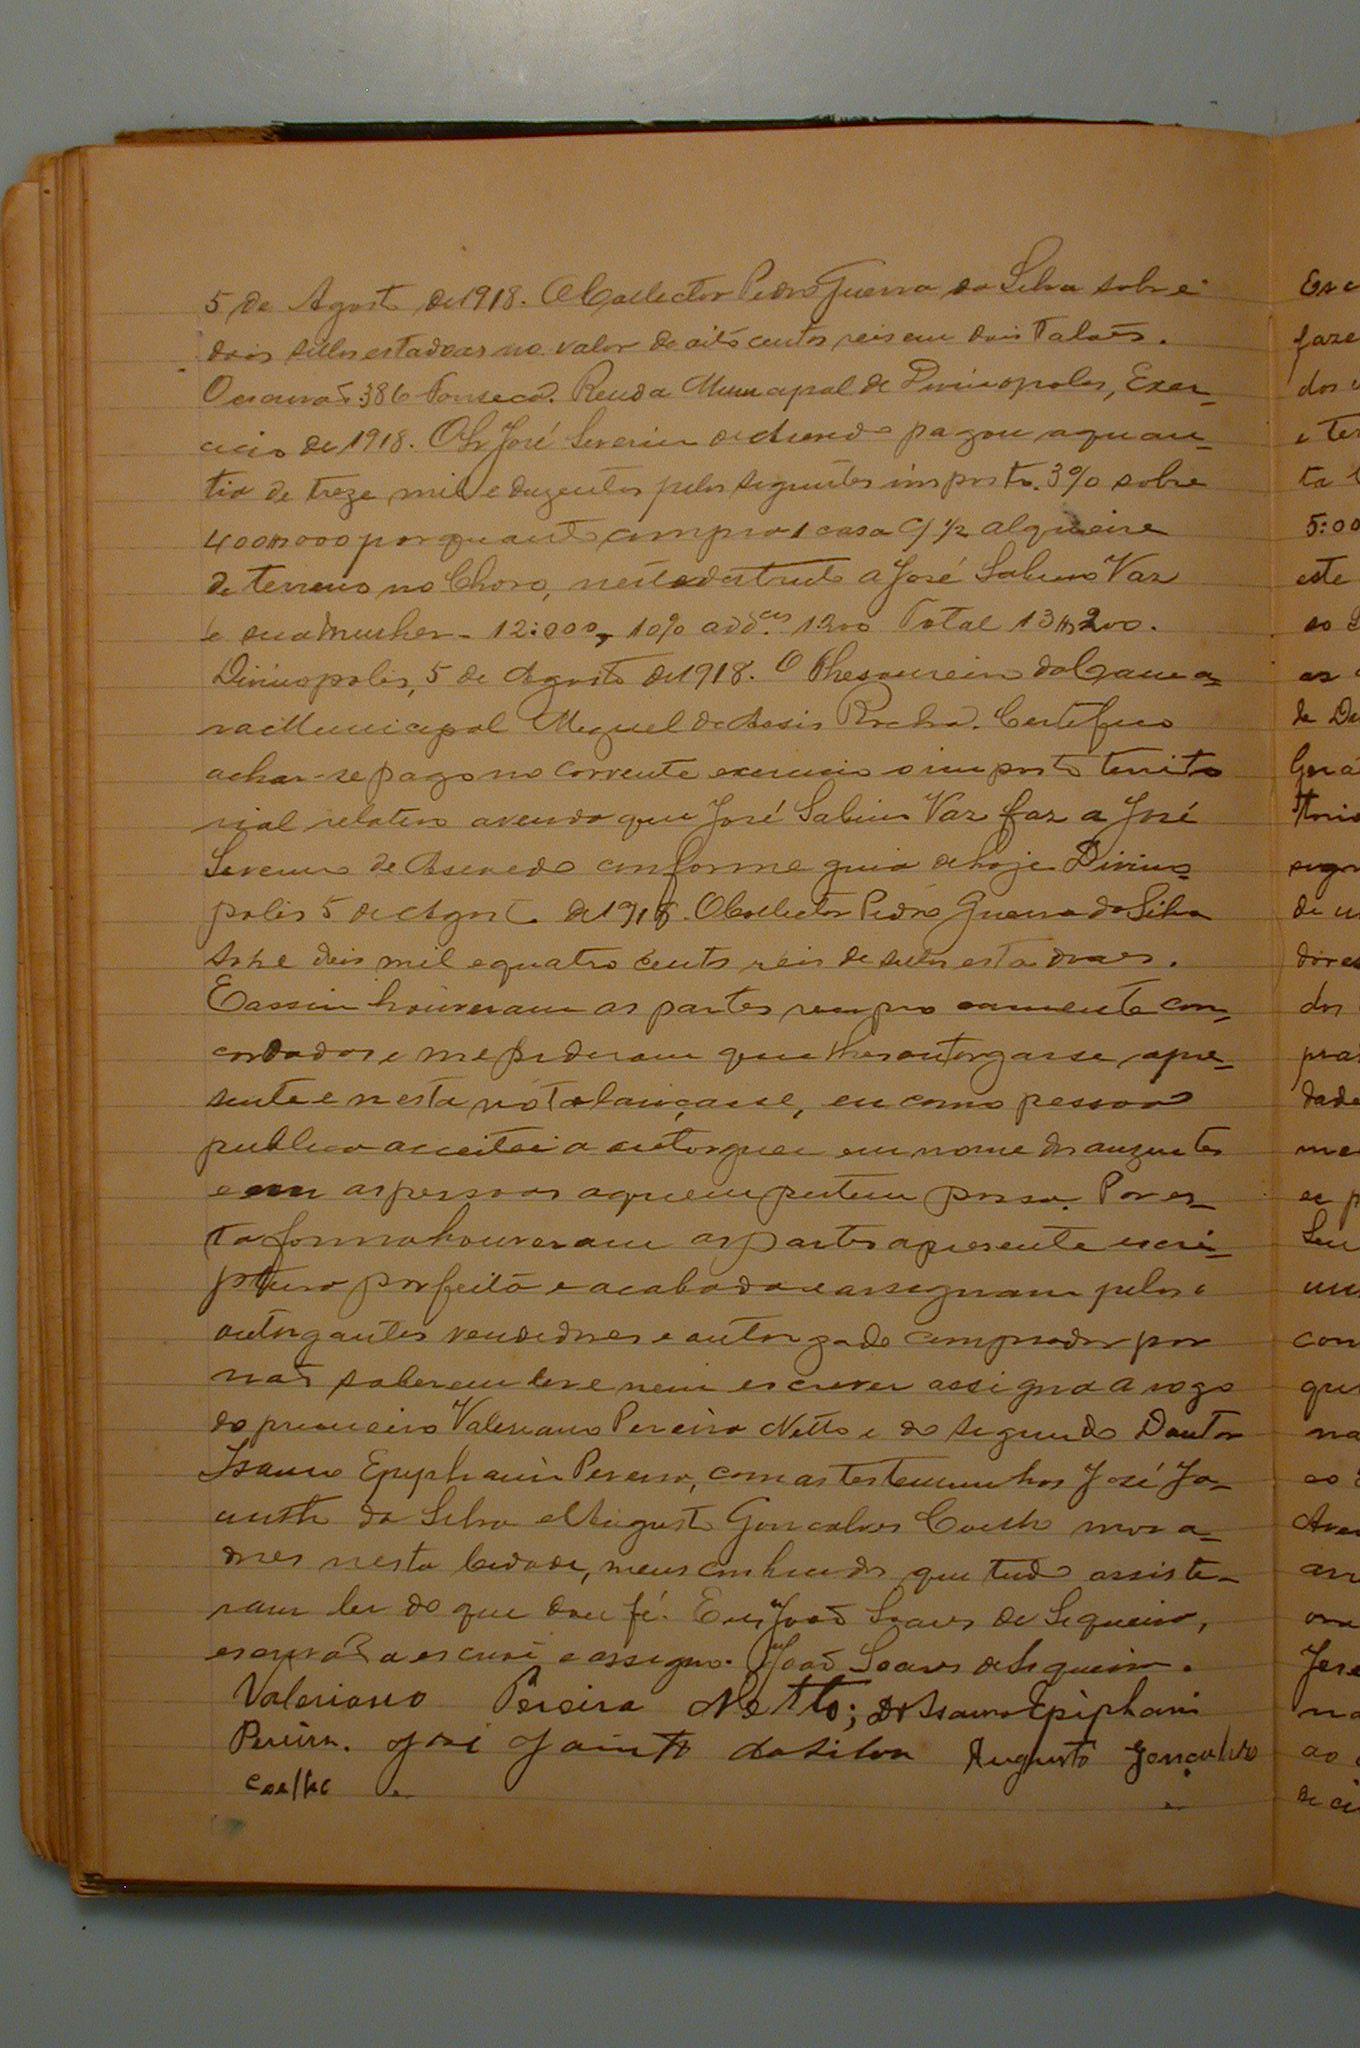 5 de Agosto de 1918. O Collector Pedro Guerra da Silva sobre
dois sellos estadoaes no valor de oito centos reis em dois talões.
O escrivão 386 Fonseca. Renda Municipal de Divinopolis, Exer-
cicio de 1918. O Sr José Severino de Asevedo pagou a quan-
tia de treze mil e duzentos pelos seguintes imposto. 3% sobre
400$000 por quanto comprou 1 casa c/ 1/2 alqueire
de terreno no Choro, neste destricto a José Sabino Vaz
e sua mulher - 12:000, 10% add.es 1200 Total 13$200.
Divinopolis, 5 de Agosto de 1918. O Thesoureiro da Cama-
ra Municipal Miguel de Assis Rocha. Certifico
achar-se pago no corrente exercicio o imposto territo
rial relativo a venda que José Sabino Vaz faz a José
Severino de Asevedo conforme guia de hoje Divino-
polis 5 de Agosto de 1918. O Collector Pedro Guerra da Silva
sobre dois mil e quatro cento reis de sellos estadoaes.
E assim houveram as partes con-
cordados e me pediram que lhes outorgasse a pre-
sente e nesta nota lançasse, eu como pessoa
publica acceitei a outorguei em nome dos auzentes
e as pessoas a quem pertencer possa. Por es-
ta forma houveram as partes a presente escri-
ptura por feita e acabada e assignam pelos
outorgantes vendedores e outorgado comprador por
não saberem ler e nem escrever assigna a rogo
do primeiro Valeriano Pereira Netto e do segundo Doutor
Isauro Epiphanio Pereira, com as testemunhas José Ja-
cintho da Silva e Augusto Gonçalves Coelho mora-
dores nesta Cidade, meus conhecidos que tudo assisti-
ram ler do que dou fé. Eu João Soares de Siqueira,
escrivão a escrevi e assigno. João Soares de Siqueira.
Valeriano Pereira Netto; Dr Isauro Epiphani
Pereira. José Jacintto da Silva Augusto Gonçalves
Coelho